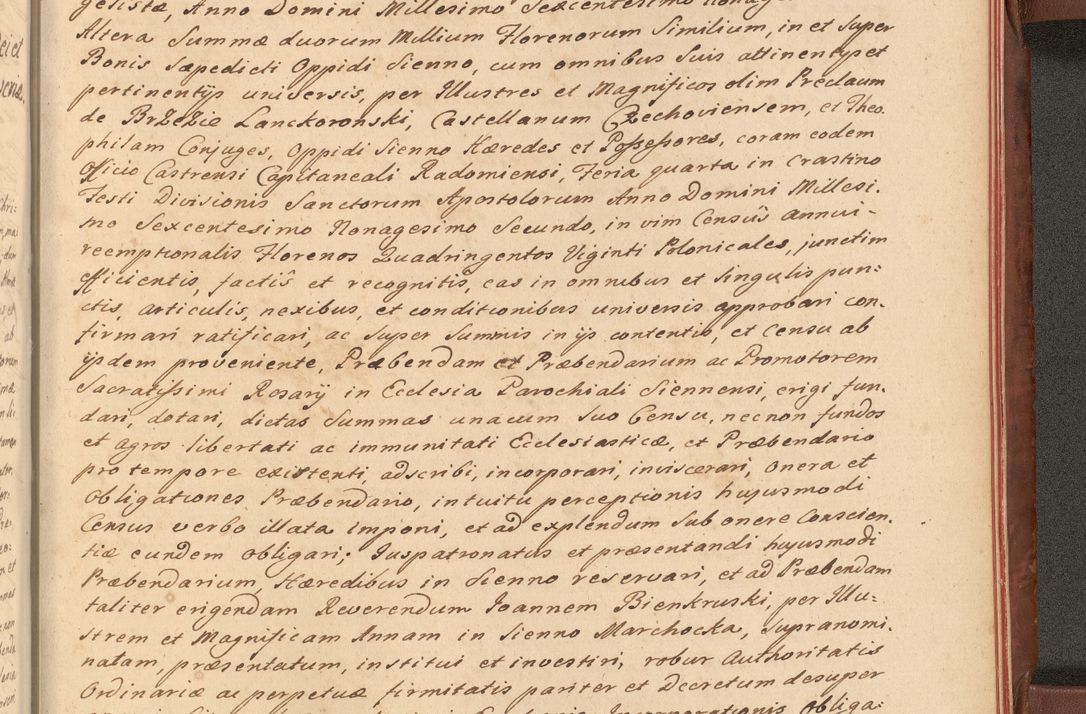 gelistæ, Anno Domini Millesimo Sexcentesimo
Altera Summæ duorum Millium Florenorum Similium, in et super
Bonis sæpedicti Oppidi Sienno, cum omnibus suis attinentijs et
pertinentijs universis, per Illustres et Magnificos olim Preclaum
de BrZeZie Lanckoronski, Castellanum Czechoviensem, et Theo.
philam Conjuges, Oppidi Sienno Hæredes et Possessores, coram eodem
Officio Castrensi Capitaneali Radomiensi, Feria quarta in Crastino
Festi Divisionis Sanctorum Apostolorum Anno Domini Millesi.
mo Sexcentesimo Nonagesimo Secundo, in vim Censûs annui-
reemptionalis Florenos Quadringentos Viginti Polonicales, junctim
efficientis, factis et recognitis, eas in omnibus et singulis pun:
ctis, articulis, nexibus, et conditionibus universis approbari con.
firmari ratificari, ac super Summis in ijs contentis, et Censu ab
ijsdem proveniente, Præbendam et Præbendarium ac Promotorem
Sacratissimi Rosarij in Ecclesia Parochiali Siennensi, erigi fun.
dari, dotari, dictas Summas unacum suo Censu, necnon fundos
et agros libertati ac immunitati Ecclesiasticæ, et Præbendario
pro tempore existenti, adscribi, incorporari, inviscerari, onera et
Obligationes Præbendario, intuitu perceptionis hujusmodi
Census verbo illata imponi, et ad explendum sub onere Conscien.
tiæ eundem obligari; Juspatronatus et præsentandi hujusmodi
Præbendarium, Hæredibus in Sienno reservari, et ad Præbendam
taliter erigendam Reverendum Joannem Bienkruski, per Illu:
strem et Magnificam Annam in Sienno Marchocka, supranomi.
natam, præsentatum, institui et investiri, robur Authoritatis
Ordinariæ ac perpetuæ firmitatis pariter et Decretum desuper
Incorporationis Obliga: